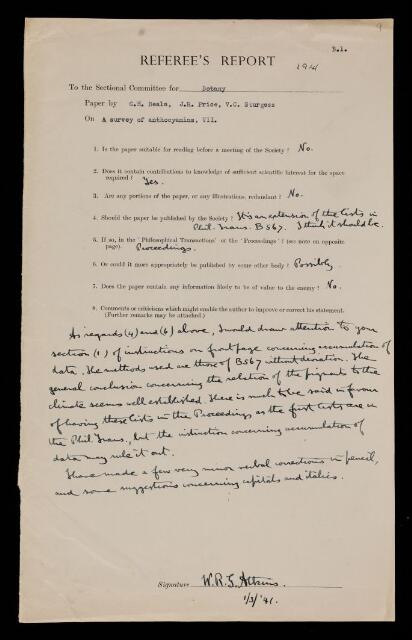 9
B.1.
REFEREE'S REPORT
1941
To the Sectional Committee for Botany
Paper by G.H. Beale, J.R. Price, V.C. Sturgess
On A survey of anthocyanins, VII.
1. Is the paper suitable for reading before a meeting of the Society ? No.
2. Does it contain contributions to knowledge of sufficient scientific interest for the space
required ? Yes.
3. Are any portions of the paper, or any illustrations, redundant ? No.
4. Should the paper be published by the Society ? It is an extension of the lists in
Phil. Trans. B 567. I think it should be.
5. If so, in the 'Philosophical Transactions' or the 'Proceedings' ? (see note on opposite
page). Proceedings.
6. Or could it more appropriately be published by some other body ? Possibly.
7. Does the paper contain any information likely to be of value to the enemy ? No.
8. Comments or criticisms which might enable the author to improve or correct his statement.
(Further remarks may be attached.)
As regards (4) and (6) above, I would draw attention to your
section (1) of instructions on front page concerning accumulation of
data. The methods used are those of B567 without deviation. The
general conclusion concerning the relation of the pigments to the
climate seems well established. There is much to be said in favour
of having these lists in the Proceedings as the first lists are in
the Phil Trans., but the instruction concerning accumulation of
data may rule it out.
I have made a few very minor verbal corrections in pencil,
and some suggestions concerning capitals and italics.
Signature W.R.G. Atkins.
1/3/'41.